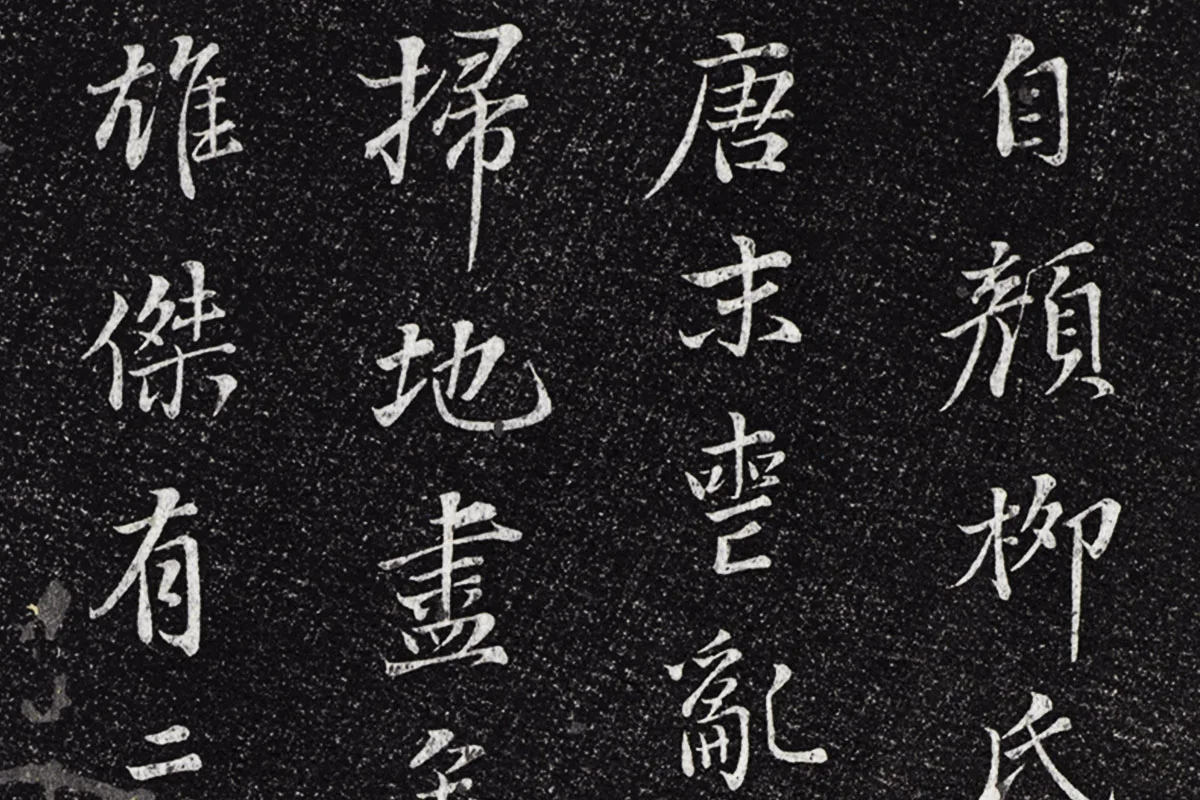 自顏柳氏
唐末喪亂
掃地盡矣
雄傑有二